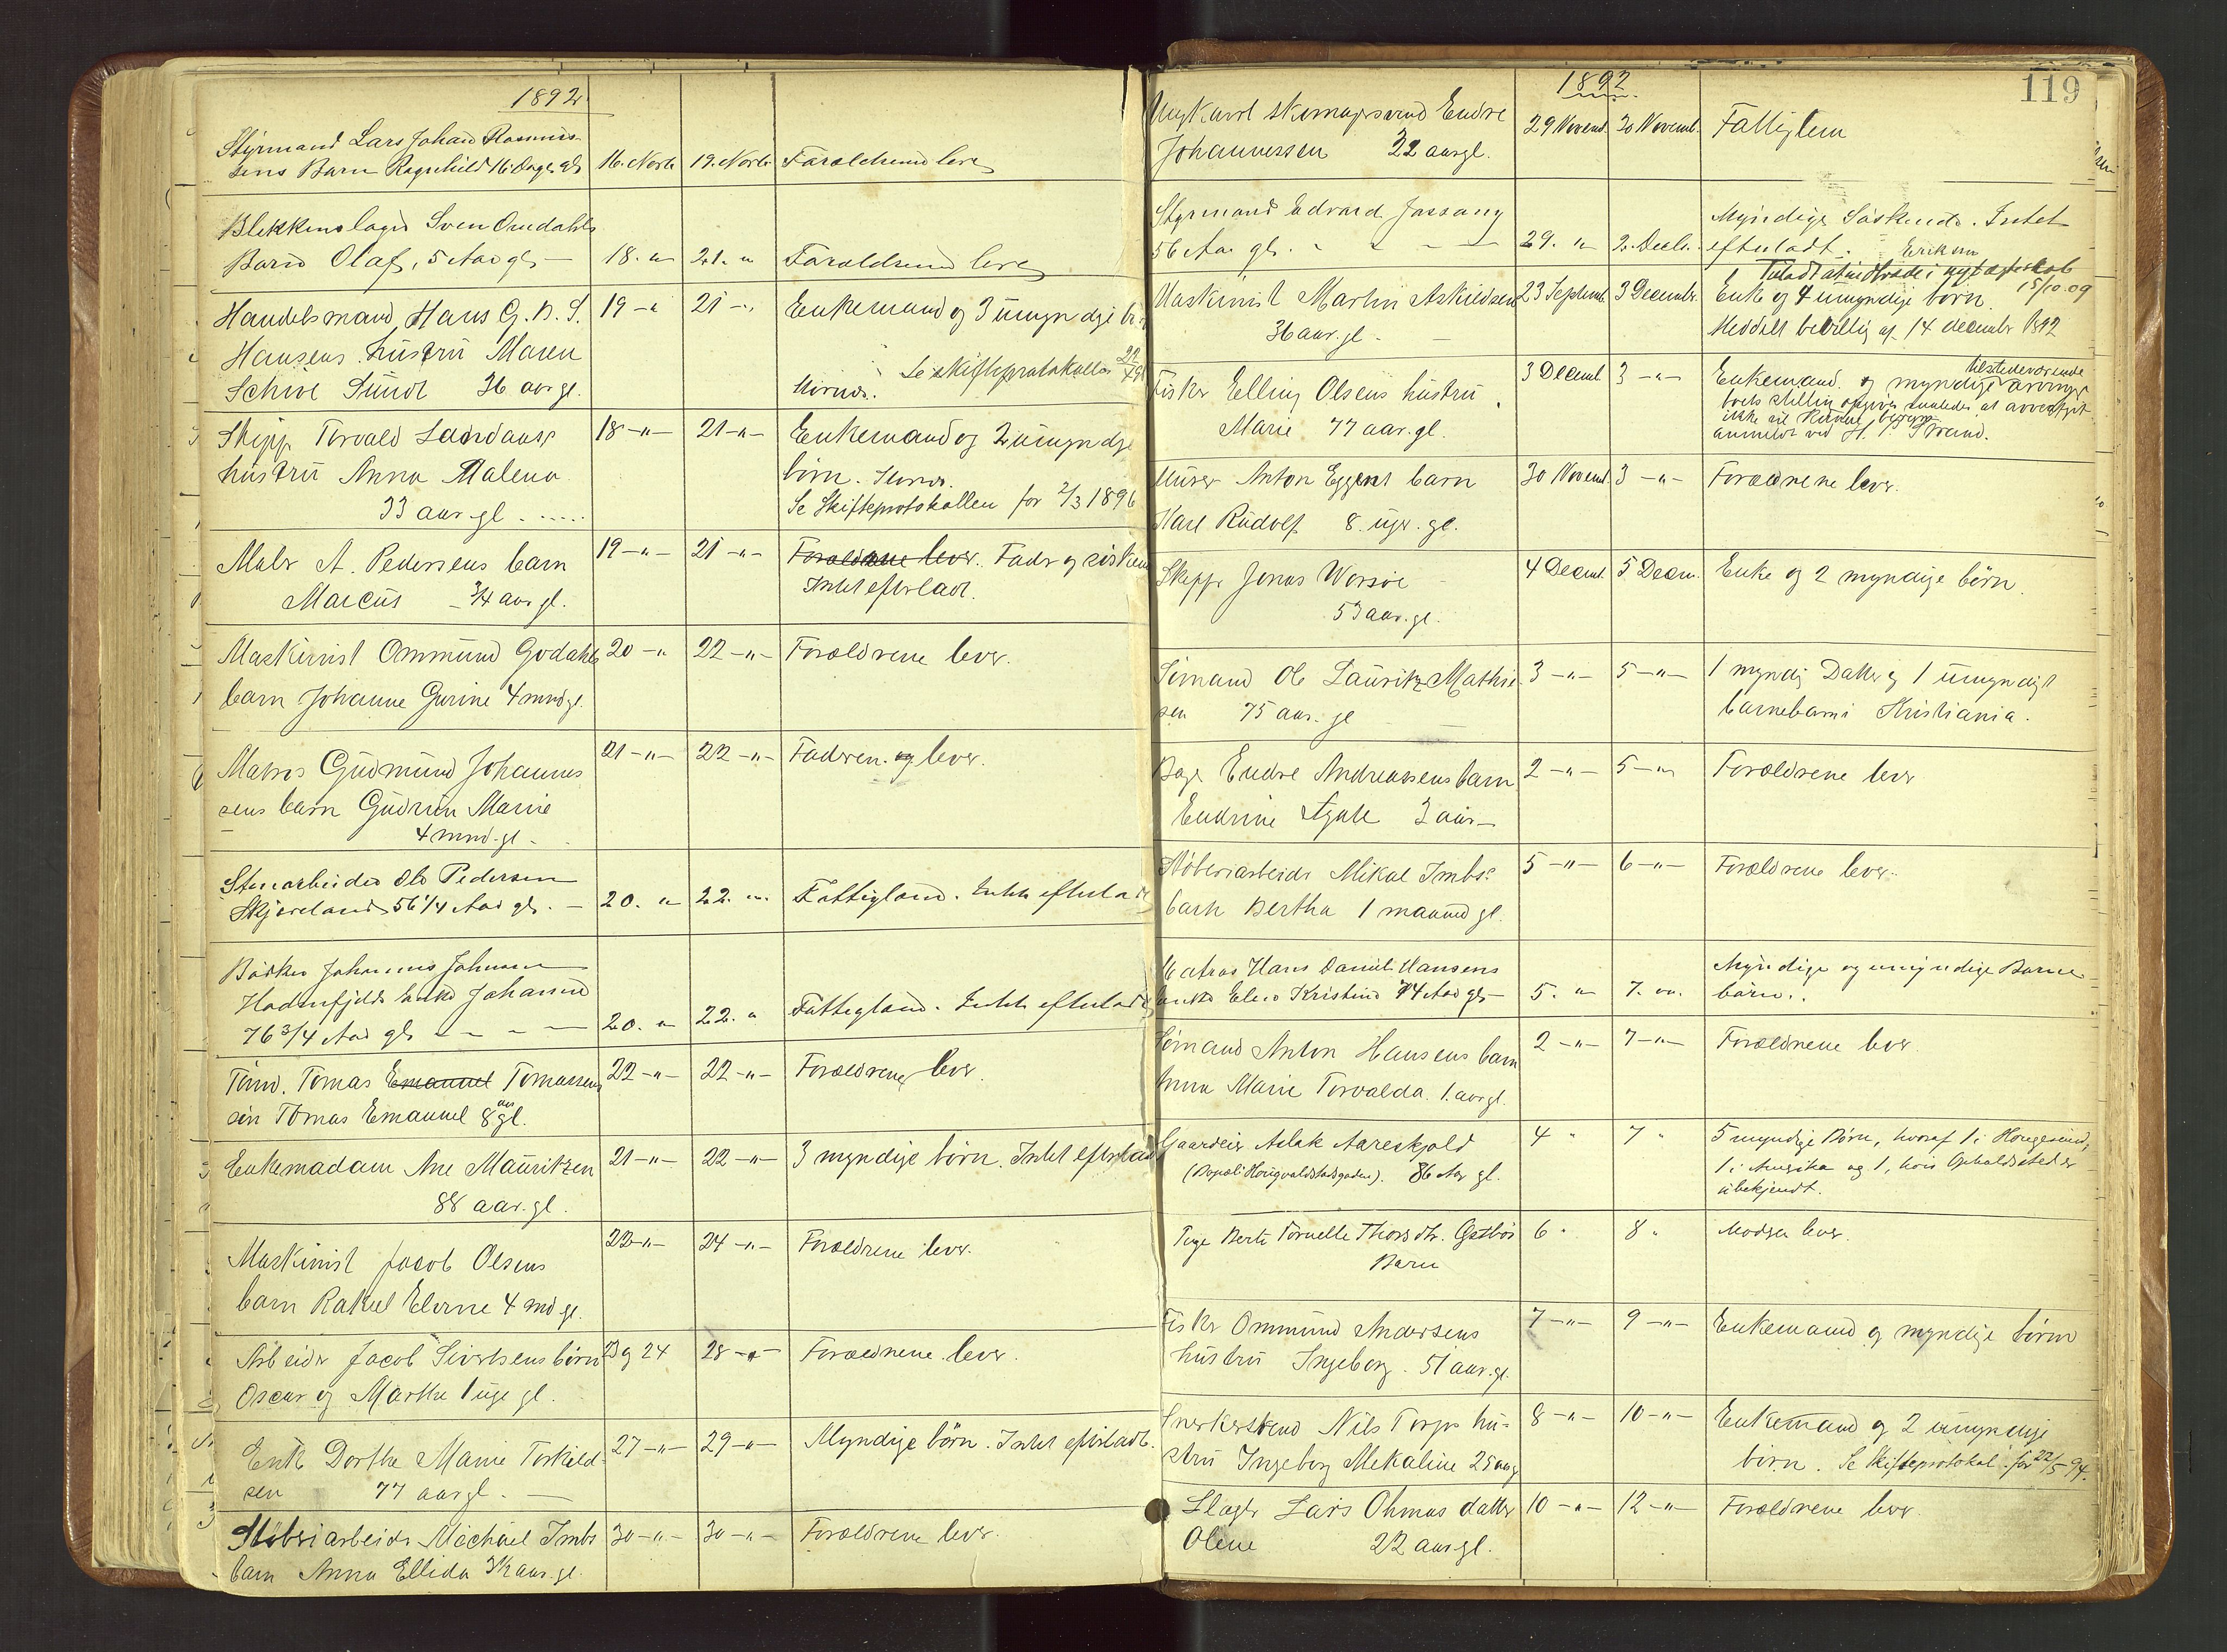 1892
Styrmand Lars Johan Rasmus-
sens Barn Ragnhild 16 Dage gl. 16. Novbr. 19. Novbr. Forældrene leve
Blikkenslager Sven Omdahls
Barn Olaf, 5 Aar gl. — 18. " 21. " Forældrene leve
Handelsmand Hans G. B. S. 19 -"- 21 -"- Enkemand og 3 umyndige
Hansens hustru Maren
Se skifteprotokollen
Schive Sundt 36 aar gl.
Skipp. Torvald 18 -"- 21 -"- Enkemand og 2 umyndige
hustru Anna Malena børn.
33 aar gl. Se Skifteprotokollen for 2/3 1896
Maler A. Pedersens barn 19 -"- 21 -"- Forældrene lever. Fader og søsken
Marcus — 3/4 aar gl. Intet efterladt.
Maskinist Ommund Godahls 20 -"- 22 -"- Forældrene lever.
barn Johanne Gurine 4 mnd gl.
Matros Gudmund Johannes 21 -"- 22 -"- Faderen og lever.
sens barn Gudrun Marie
4 mnd. gl.
Stenarbeider Ole Pedersen
Skjæveland 56 1/4 Aar gl. — 20. " 22. " Fattiglem. Intet efterladt
Bødker Johannes Johnsen
Enke Johanne
76 3/4 Aar gl. 20. " 22. " Fattiglem. Intet efterladt
Tømd. Tomas Emanuel Tomassens 22 -"- 22 -"- Forældrene lever.
søn Tomas Emanuel 8 aar gl.
Enkemadam Ane Mauritzen 21 -"- 22 -"- 3 myndige børn. Intet efterladt
88 aar. gl.
Maskinist Jacob Olsens 22 -"- 24 -"- Forældrene lever.
barn Rakel Elvine 4 md gl.
Arbeider Jacob Sivertsens børn 23 og 24 28 -"- Forældrene lever.
Oscar og Marthe 1 uge gl.
Enke Dorthe Marie Torkild- 27 -"- 29 -"- Myndige børn. Intet efterladt.
sen 77 aar gl. —
Støberiarbeider Michael Imbs 30 -"- 30 -"- Forældrene lever.
barn Anna Ellida 3 1/2 aar. gl.
119
1892
Ungkarl skomagersvend Endre 29 Novemb. 30 Novemb. Fattiglem
Johannessen 22 aar gl.
Styrmand Edvard Myndige Søskende. Intet
56 Aar gl. 29. " 2. Decbr. efterladt.
Tilladt at indtræde i nyt ægteskab
15/10.09
Maskinist Martin Askildsen 23 Septemb. 3 Decembr. Enke og 4 umyndige børn.
36 aar. gl. — Meddelt bevilling af 14 december 1892
Fisker Elling Olsens hustru 3 Decemb. 3 -"- Enkemand og myndige tilstedeværende arvinger
Marie 77 aar. gl. boets stilling opgives saaledes at arveafgift
ikke vil
anmeldt ved
Murer Anton Eggens barn 30 Novemb. 3 -"- Forældrene lever.
Karl Rudolf 8. uger. gl.
Skipper Jonas Worsøe 4 Decemb. 5. Decem. Enke og 2 myndige børn.
53 aar. gl.
Sømand Ole Lauritz Mathie 3 -"- 5 -"- 1 myndig Datter og 1 umyndigt
sen 75 aar. gl. — barnebarn i Kristiania.
Bager Endre Andreassens barn 2 -"- 5 -"- Forældrene lever
Endrine Agate 3 aar —
Støberiarbeider Mikal Imbs. 5 -"- 6 -"- Forældrene lever.
barn Bertha 1 maaned gl.
Matros Hans Daniel Hansens Myndige og umyndige Barne-
enke Elen Kristine 74 Aar gl. — 5. " 7. " børn.
Sømand Anton Hansens barn 2 -"- 7 -"- Forældrene lever
Anna Marie Torvalda. 1. aar gl.
Gaardeier Aslak Aareskjold 4 " 7 " 5 myndige Børn, hvoraf 1 i Hougesund,
86 Aar gl. 1 i Amerika og 1, hvis Opholdssted er
ubekjendt.
Pige Berte Tornelle Thorsdtr. 6 " 8 " Moder lever.
Barn
Fisker Ommund Andersens 7 -"- 9 -"- Enkemand og myndige børn
hustru Ingeborg. 51 aar. gl.
Snerkersvend Nils Torps hu- 8 -"- 10 -"- Enkemand og 2 umyndige
stru Ingeborg Mekaline 25 aar gl. børn. Se Skifteprotokol. for 22/5 94.
Slagter Lars Ohmas datter 10 -"- 12 -"- Forældrene lever
Oline 22 aar gl.